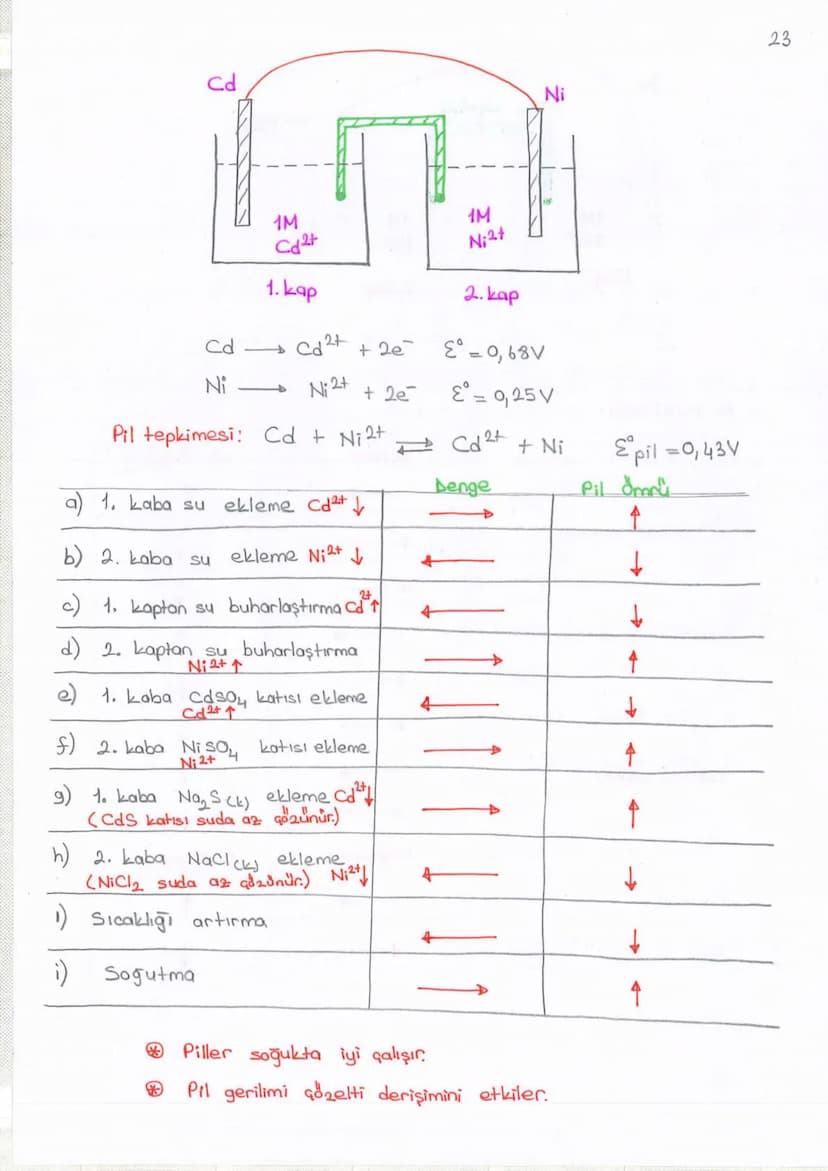 23
Cd
Ni
1M
Cd²⁺
1M
Ni²⁺
1. kap
2. kap
Cd → Cd²⁺ + 2e⁻ Ɛ° = 0,68V
Ni → Ni²⁺ + 2e⁻ Ɛ° = 0,25V
Pil tepkimesi: Cd + Ni²⁺ ⇌ Cd²⁺ + Ni Ɛ°pil = 0,43V
Denge Pil Ömrü
a) 1. kaba su ekleme Cd²⁺ ↓ → ↑
b) 2. kaba su ekleme Ni²⁺ ↓ ← ↓
c) 1. kaptan su buharlaştırma Cd²⁺ ↑ ← ↓
d) 2. kaptan su buharlaştırma → ↑
Ni²⁺ ↑
e) 1. kaba CdSO₄ katısı ekleme ← ↓
Cd²⁺ ↑
f) 2. kaba NiSO₄ katısı ekleme → ↑
Ni²⁺
g) 1. kaba Na₂S(k) ekleme Cd²⁺↓ → ↑
(CdS katısı suda az çözünür.)
h) 2. kaba NaCl(k) ekleme ← ↓
(NiCl₂ suda az çözünür.) Ni²⁺↓
ı) Sıcaklığı artırma ← ↓
i) Soğutma → ↑
⊛ Piller soğukta iyi çalışır.
⊛ Pil gerilimi çözelti derişimini etkiler.